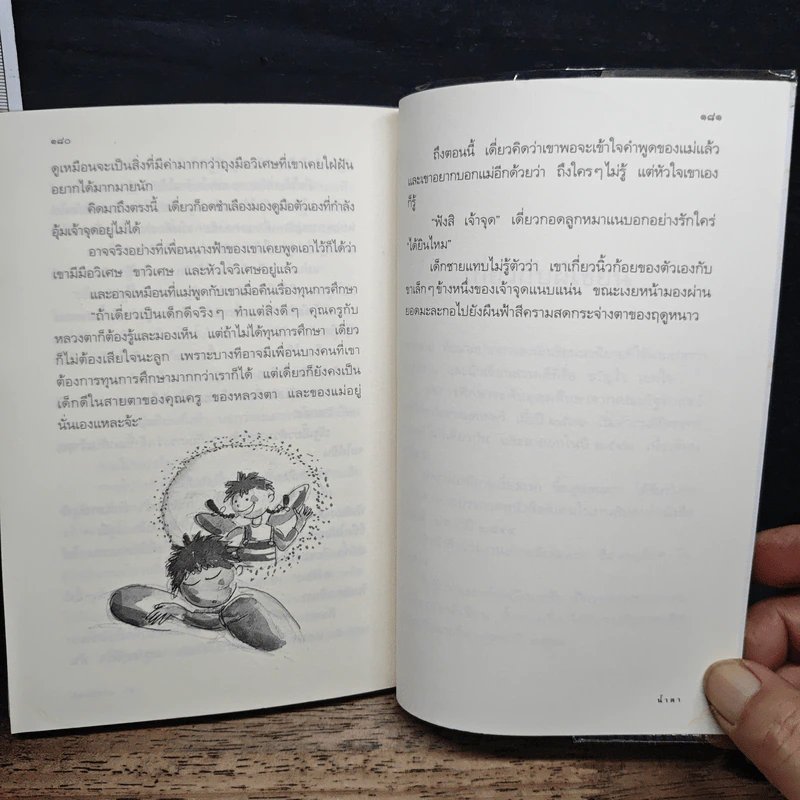 ๑๘๐
ดูเหมือนจะเป็นสิ่งที่มีค่ามากกว่าถุงมือวิเศษที่เขาเคยใฝ่ฝัน
อยากได้มากมายนัก
คิดมาถึงตรงนี้ เดี่ยวก็อดชำเลืองมองดูมือตัวเองที่กำลัง
อุ้มเจ้าจุดอยู่ไม่ได้
อาจจริงอย่างที่เพื่อนนางฟ้าของเขาเคยพูดเอาไว้ก็ได้ว่า
เขามีมือวิเศษ ขาวิเศษ และหัวใจวิเศษอยู่แล้ว
และอาจเหมือนที่แม่พูดกับเขาเมื่อคืนเรื่องทุนการศึกษา
“ถ้าเดี่ยวเป็นเด็กดีจริงๆ ทำแต่สิ่งดีๆ คุณครูกับ
หลวงตาก็ต้องรู้และมองเห็น แต่ถ้าไม่ได้ทุนการศึกษา เดี่ยว
ก็ไม่ต้องเสียใจนะลูก เพราะบางทีอาจมีเพื่อนบางคนที่เขา
ต้องการทุนการศึกษามากกว่าเราก็ได้ แต่เดี่ยวก็ยังคงเป็น
เด็กดีในสายตาของคุณครู ของหลวงตา และของแม่อยู่
นั่นเองแหละจ้ะ”
๑๘๑
ถึงตอนนี้ เดี่ยวคิดว่าเขาพอจะเข้าใจคำพูดของแม่แล้ว
และเขาอยากบอกแม่อีกด้วยว่า ถึงใครๆ ไม่รู้ แต่หัวใจเขาเอง
ก็รู้
“ฟังสิ เจ้าจุด” เดี่ยวกอดลูกหมาแนบอกอย่างรักใคร่
“ได้ยินไหม”
เด็กชายแทบไม่รู้ตัวว่า เขาเกี่ยวนิ้วก้อยของตัวเองกับ
ขาเล็กๆ ข้างหนึ่งของเจ้าจุดแนบแน่น ขณะเงยหน้ามองผ่าน
ยอดมะละกอไปยังผืนฟ้าสีครามสดกระจ่างตาของฤดูหนาว
น้ำตา